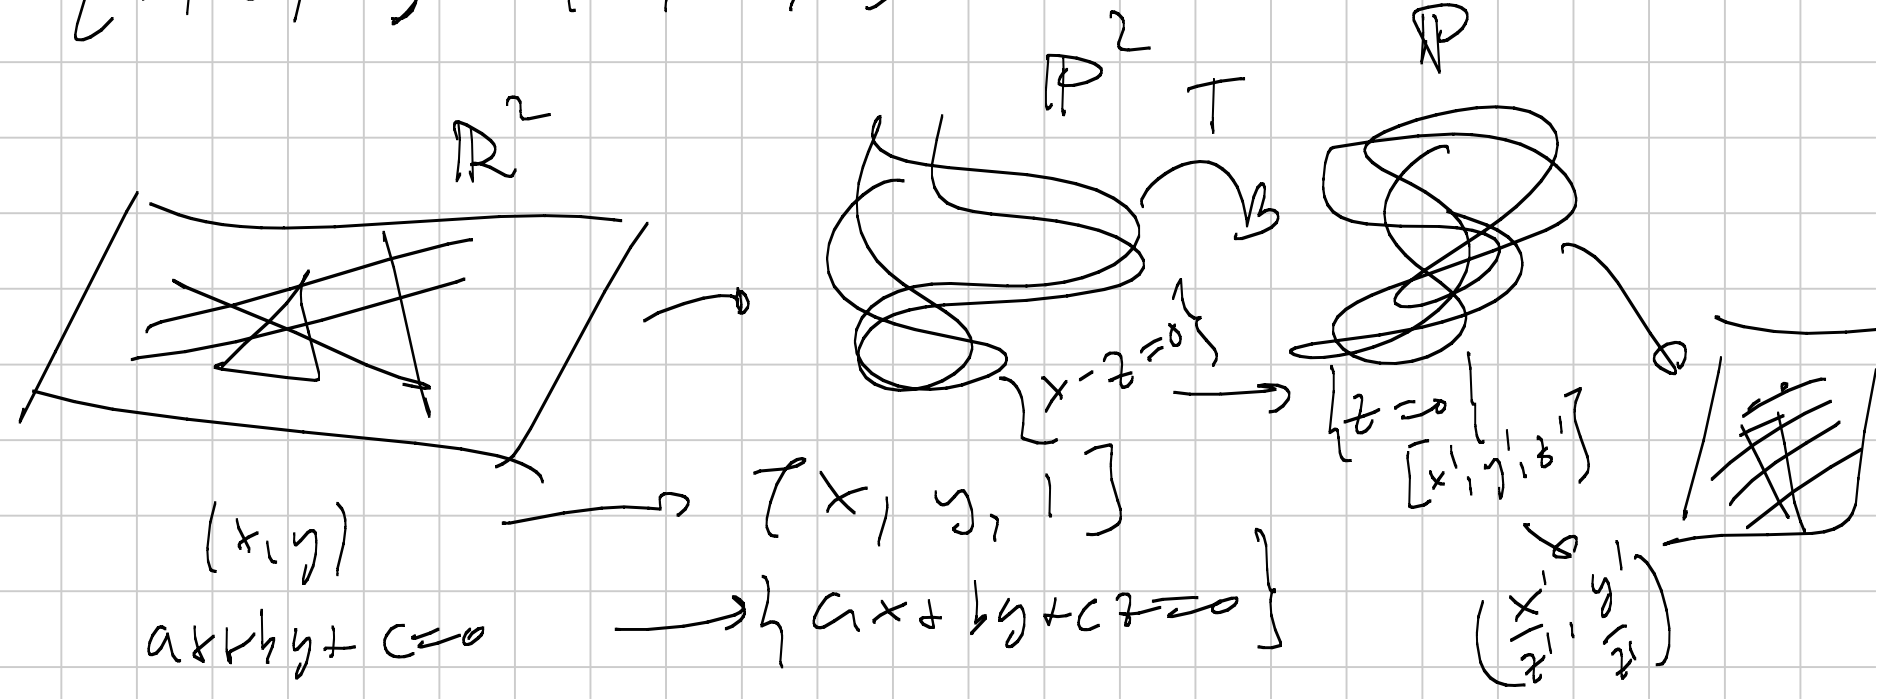 ℙ² T ℙ
ℝ²
{x-z=0} → {z=0 |
[x', y', z']}
(x, y) → [x, y, 1]
ax+by+c=0 → {ax+by+cz=0}
(x'/z', y'/z')